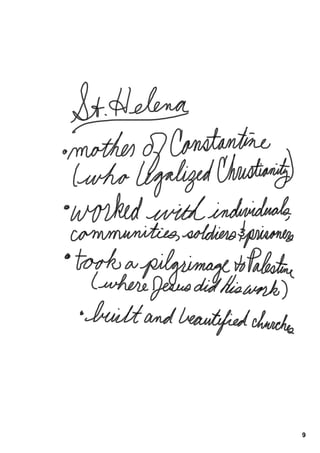 St. Helena
• mother of Constantine
(who legalized Christianity)
• worked with individuals,
communities, soldiers & prisoners
• took a pilgrimage to Palestine
(where Jesus did His work)
• built and beautified churches
9